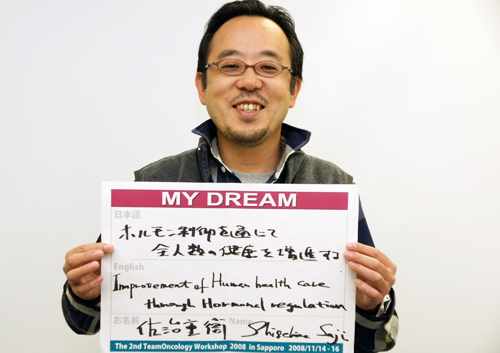 MY DREAM
日本語
ホルモン制御を通じて
全人類の健康を増進する
English
Improvement of Human health care
through Hormonal regulation
お名前 佐治重衡 Name Shigehira Saji
The 2nd TeamOncology Workshop 2008 in Sapporo 2008/11/14 - 16